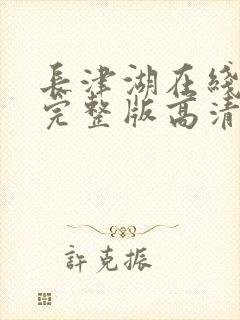 長津湖在綫
完整版高清
許克振